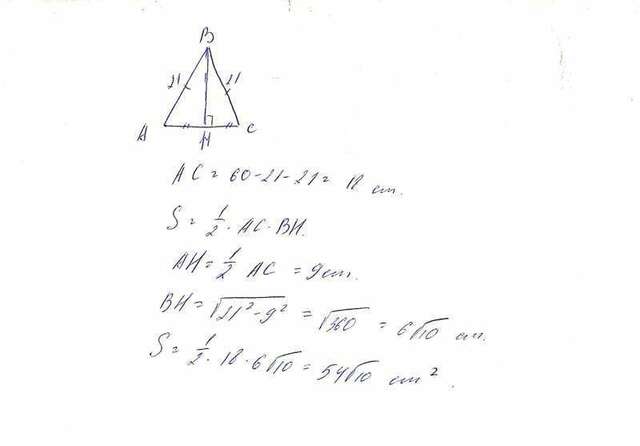 B
21 21
A H C
AC = 60 - 21 - 21 = 18 cm.
S = 1/2 · AC · BH.
AH = 1/2 AC = 9 cm.
BH = √21² - 9² = √360 = 6√10 cm.
S = 1/2 · 18 · 6√10 = 54√10 cm².